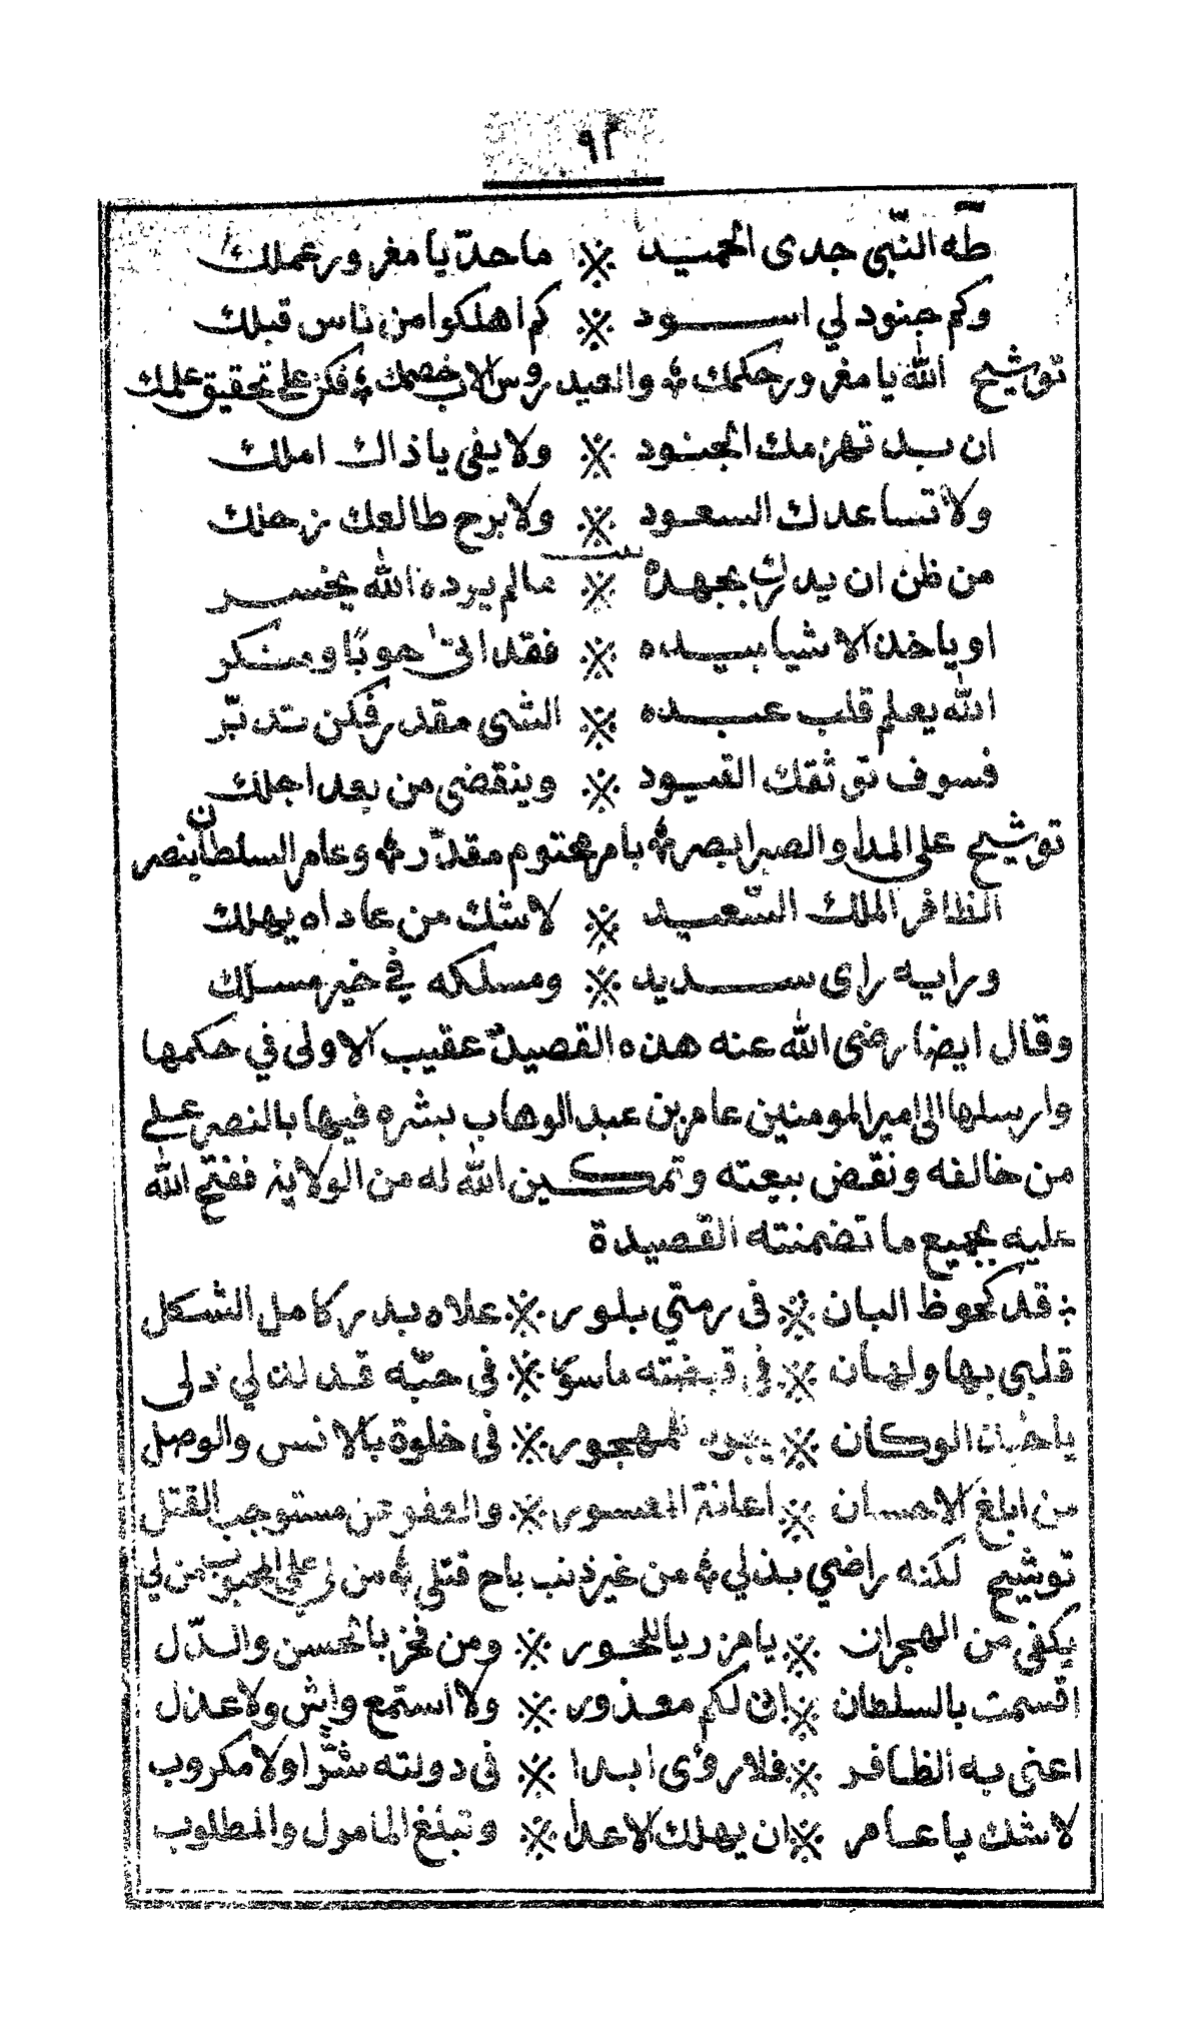 ٩٢
طه النبي جدى الحميد ※ ما حدّ يا مغرور عملك
وكم جنود لي اسود ※ كم اهلكوا من ناس قبلك
توشيح الله يا مغرور حكمك ⁘ والعيدروس الاب خصمك ⁘ فكن على تحقيق علمك
ان بد تهزمك الجنود ※ ولا يفى يا ذاك املك
ولا تساعدك السعود ※ ولا برح طالعك زحلك
من ظن ان يدرك بجهده ※ مالم يرده الله يخسر
او ياخذ الاشيا بيده ※ فقد اتى حوبًا ومنكر
الله يعلم قلب عبده ※ الشى مقدر فكن تدبّر
فسوف توثقك القيود ※ وينقضى من بعد اجلك
توشيح على المدا والصبر ابصر ⁘ بامر محتوم مقدّر ⁘ وعامر السلطان ينصر
الظافر الملك السّعيد ※ لا شك من عاداه يهلك
ورايه راى سديد ※ ومسلكه في خير مسلك
وقال ايضا رضى الله عنه هذه القصيدة عقيب الاولى في حكمها
وارسلها الى امير المومنين عامر بن عبد الوهاب بشره فيها بالنصر على
من خالفه ونقض بيعته وتمكين الله له من الولاية ففتح الله
عليه بجميع ما تضمنته القصيدة
⁘ قد كحوظ البان ※ فى رمتي بلور ※ علاه بدر كامل الشكل
قلبى بها ولهان ※ في قبضته ماسور ※ فى حبّه قد لذ لي ذلى
يا حبذا لوكان ※ يجود للمهجور ※ فى خلوة بالانس والوصل
من ابلغ الاحسان ※ اعانة المعسور ※ والعفو عن مستوجب القتل
توشيح لكنه راضي بذلي ⁘ من غير ذنب باح قتلى ⁘ من لي على المحبوب من لي
يكفى من الهجران ※ يا مزريا للحور ※ ومن فخر بالحسن والدّل
اقسمت بالسلطان ※ انى لكم معذور ※ ولا استمع واش ولا عذل
اعنى به الظافر ※ فلا روى ابدا ※ فى دولته شرّا ولا مكروب
لا شك يا عامر ※ ان يهلك الاعدا ※ وتبلغ المامول والمطلوب